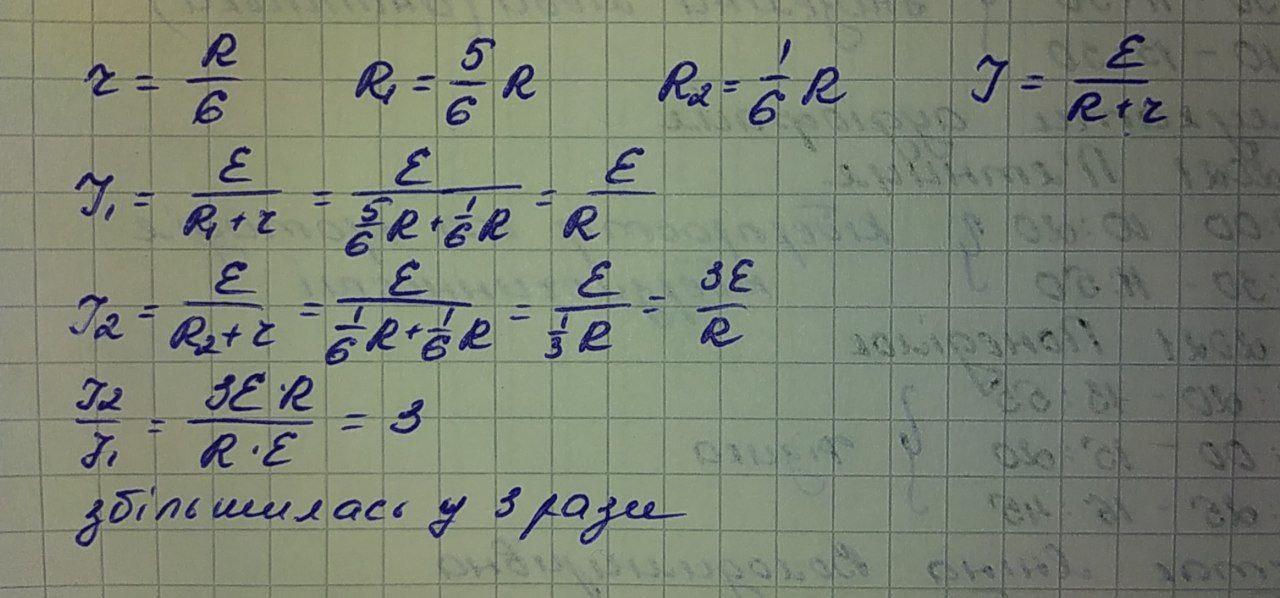 r = R/6 R₁ = 5/6 R R₂ = 1/6 R I = ε/(R+r)
I₁ = ε/(R₁+r) = ε/(5/6 R + 1/6 R) = ε/R
I₂ = ε/(R₂+r) = ε/(1/6 R + 1/6 R) = ε/(1/3 R) = 3ε/R
I₂/I₁ = 3ε·R/(R·ε) = 3
збільшилась у 3 рази